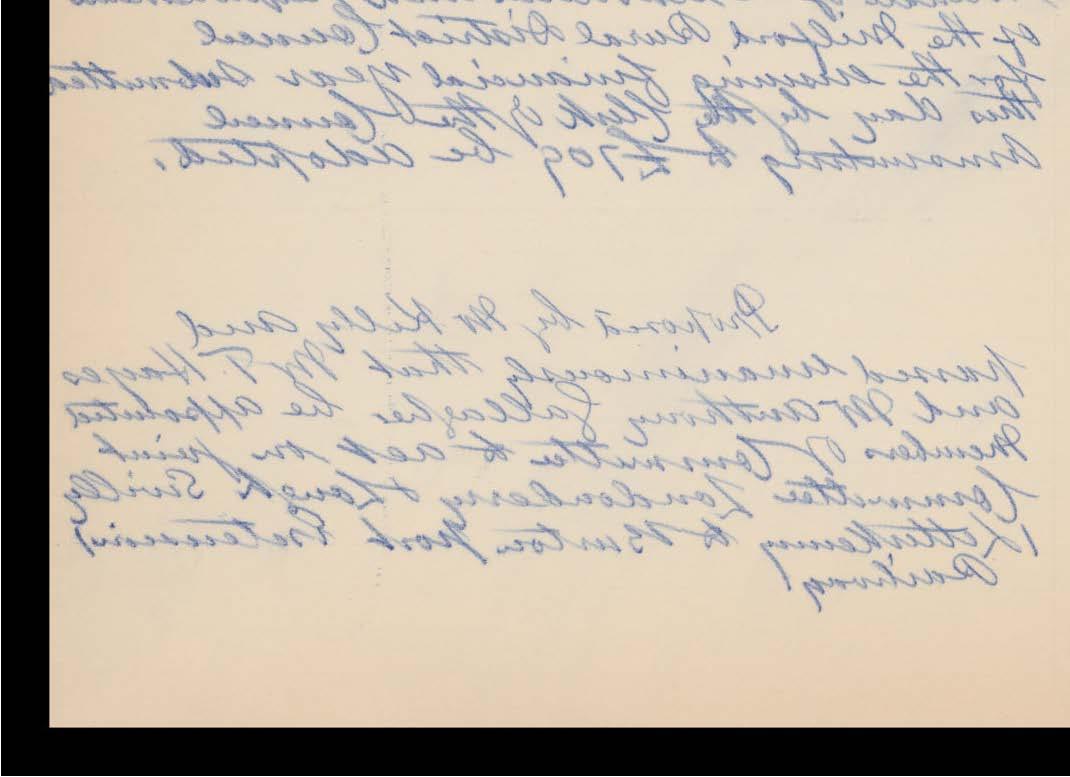 of the Milford Rural District Council
for the ensuing financial year submitted
this day by the Clerk of the Council
amounting to £709 be adopted.
Proposed by Mr Kelly and
passed unanimously that Mr T Hayes
and Mr Anthony Gallagher be appointed
members of Committee to act on joint
Committee Londonderry & Lough Swilly
(Letterkenny to Burton port Extension)
Railway